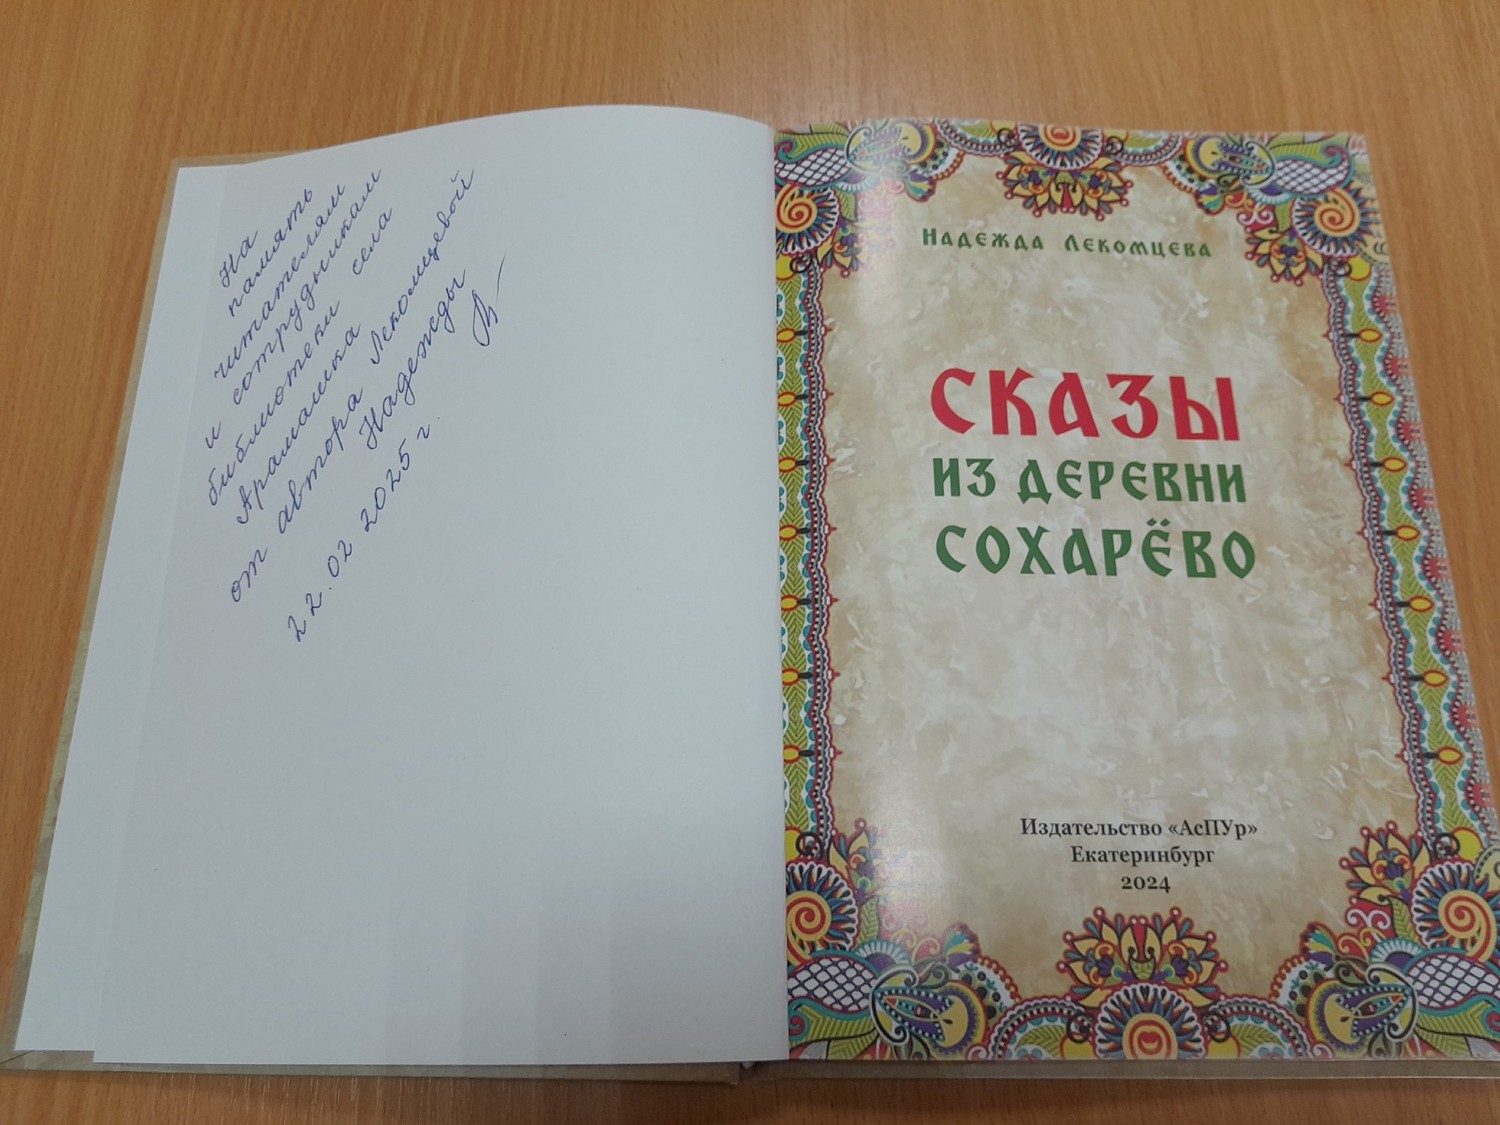 На
память
читателям
и сотрудникам
библиотеки села
Арамашка
от автора Лекомцевой
Надежды
22.02 2025 г.
Надежда Лекомцева
СКАЗЫ
ИЗ ДЕРЕВНИ
СОХАРЁВО
Издательство «АсПУр»
Екатеринбург
2024